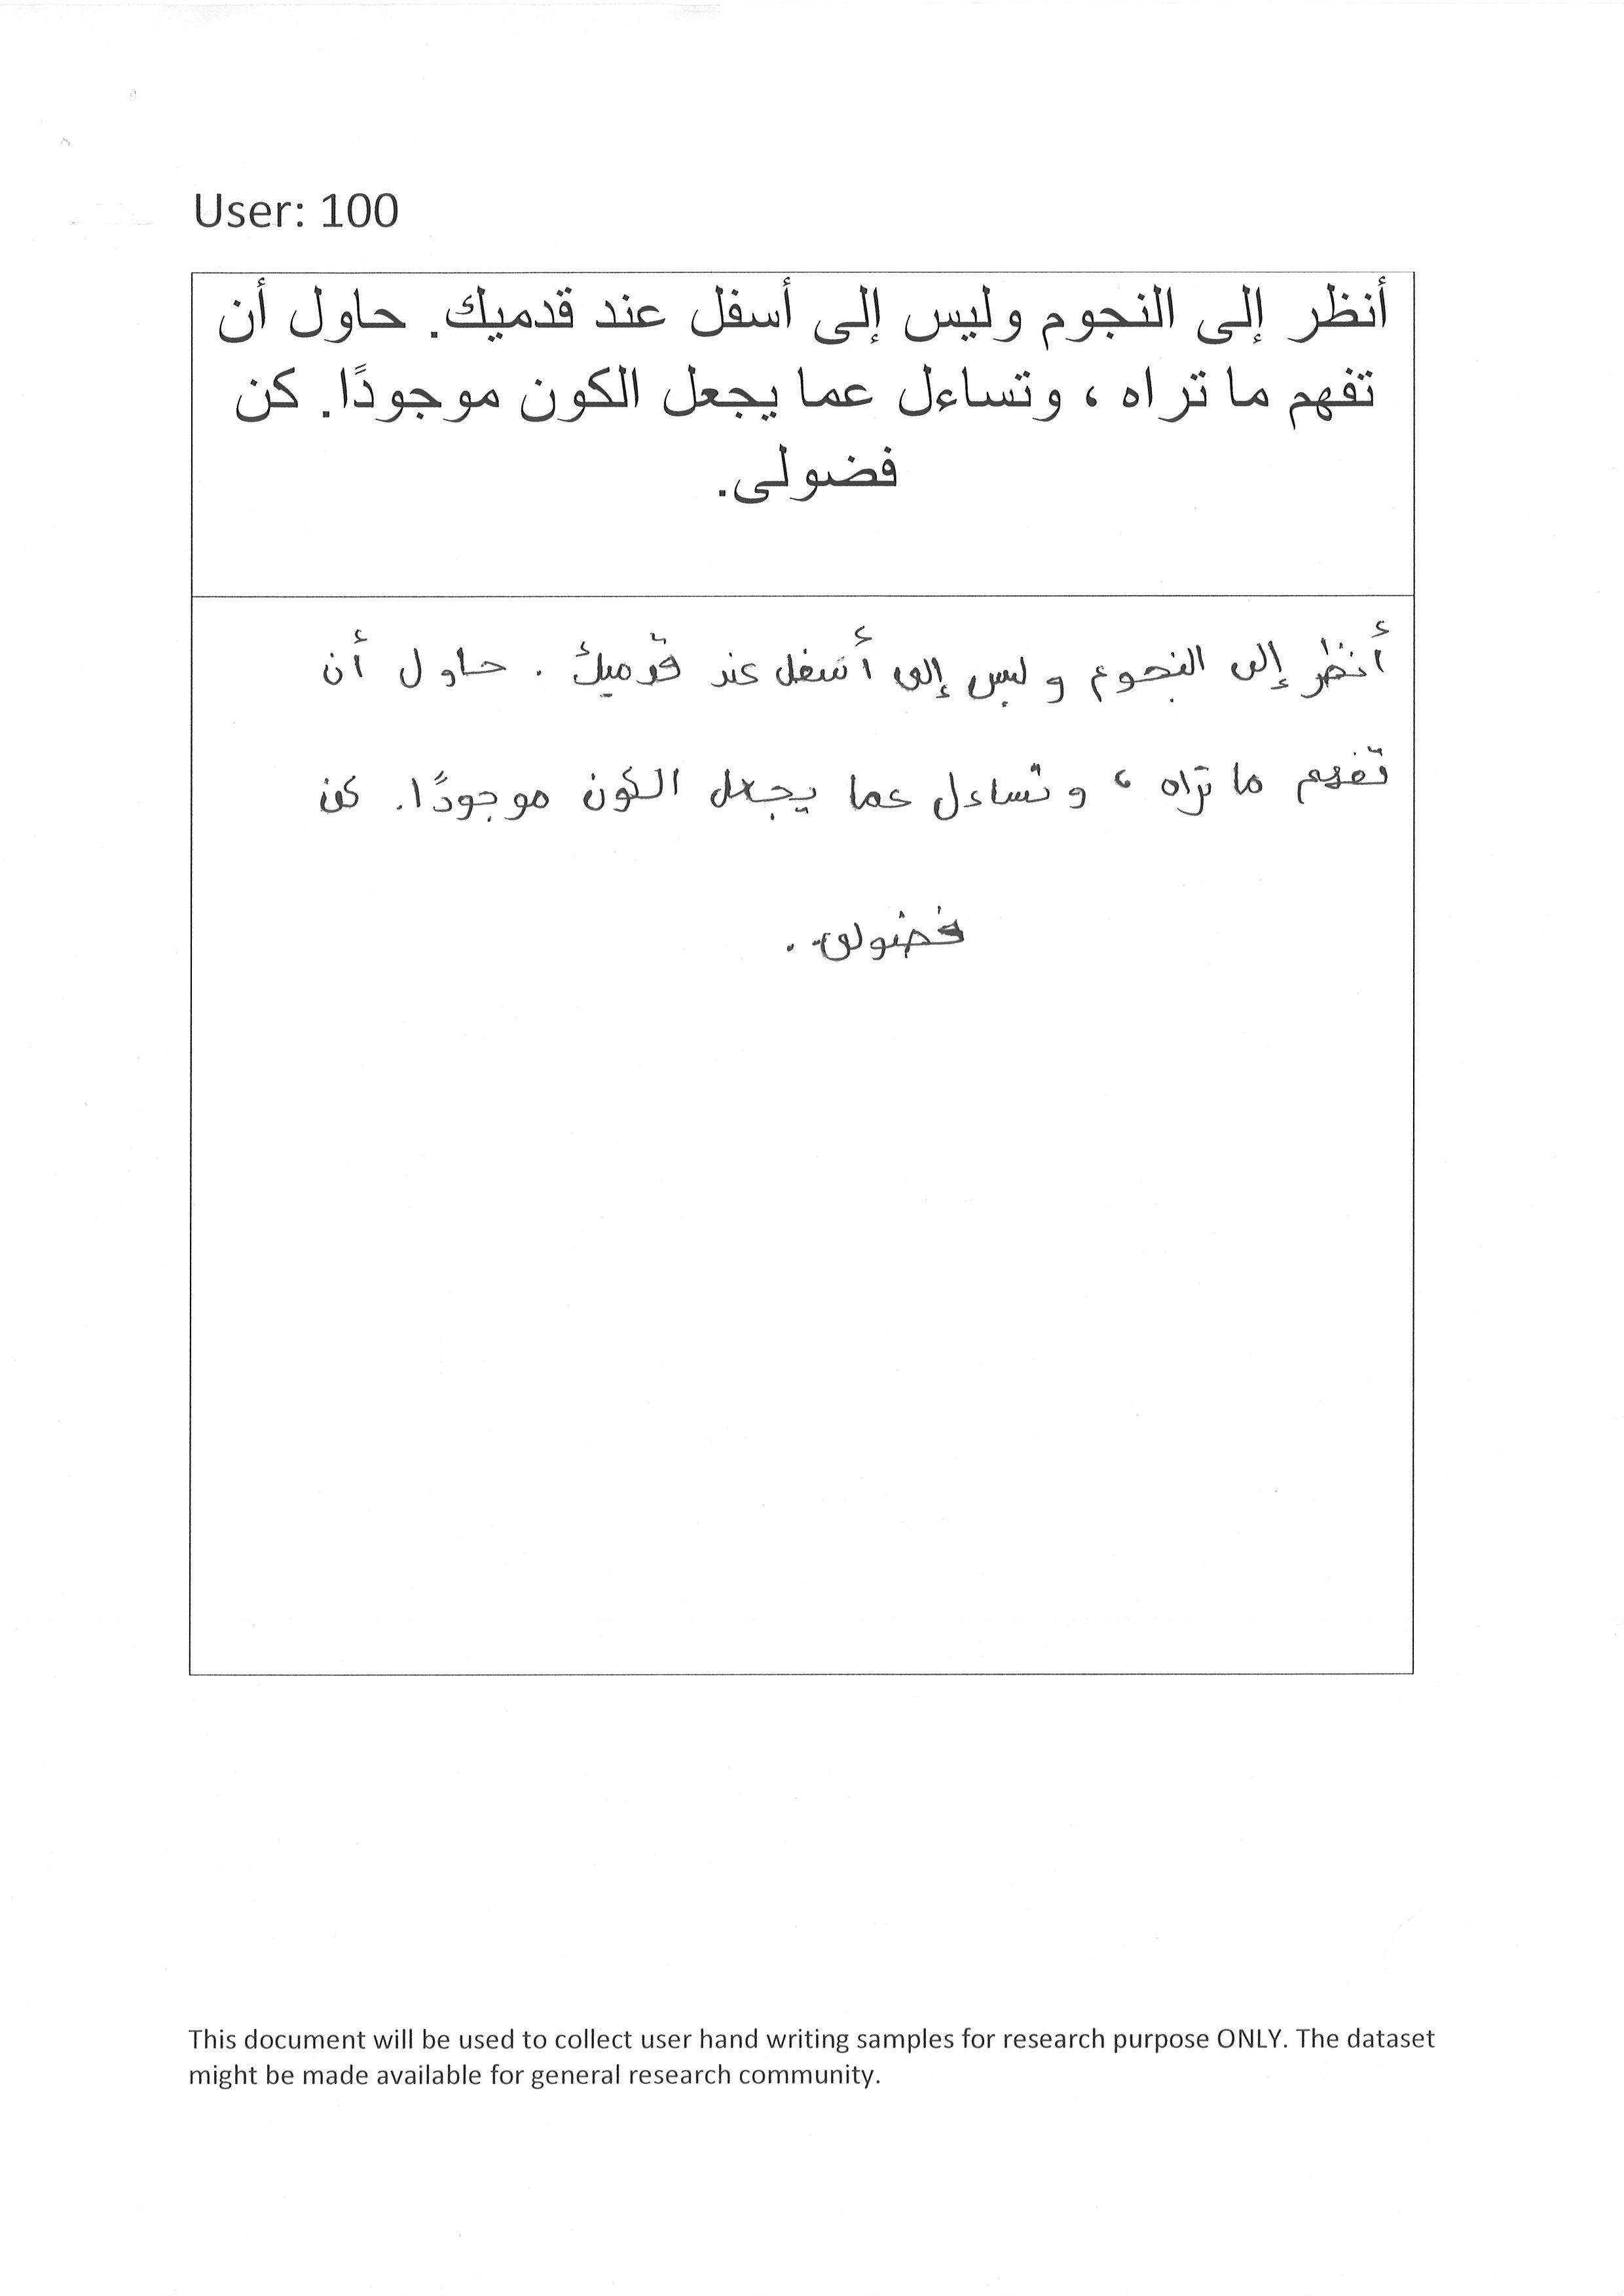 User: 100
أنظر إلى النجوم وليس إلى أسفل عند قدميك. حاول أن
تفهم ما تراه ، وتساءل عما يجعل الكون موجودًا. كن
فضولى.
أنظر إلى النجوم وليس إلى أسفل عند قدميك . حاول أن
تفهم ما تراه ، وتساءل عما يجعل الكون موجودًا. كن
فضولى .
This document will be used to collect user hand writing samples for research purpose ONLY. The dataset
might be made available for general research community.